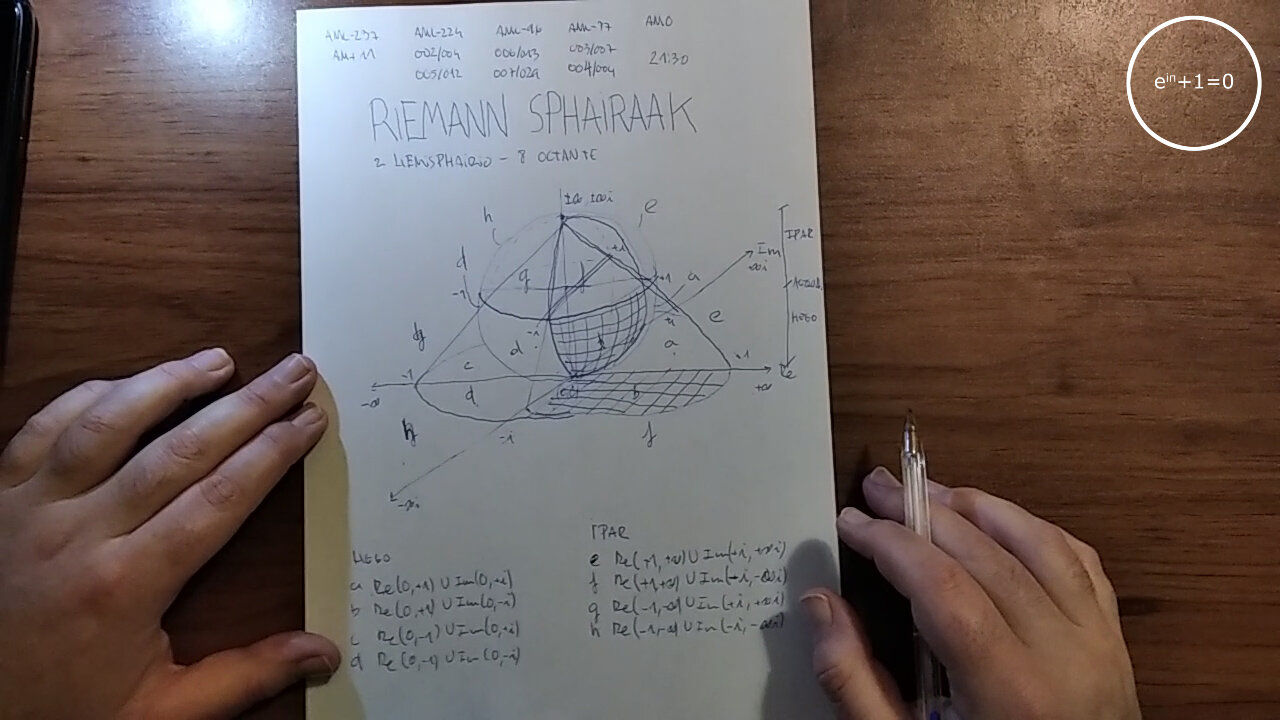 AML-237 AML-224 AML-96 AML-77 AM0
AM+11 002/004 006/013 003/007 21:30
005/012 007/029 004/004
eⁱⁿ+1=0
RIEMANN SPHAIRAAK
2 HEMISPHAIRIO - 8 OCTANTE
±∞, ±∞i
h
e
d
g
f
+i
-1
+1
a
Im
+∞i
IPAR
HEGO
-i
d
e
a
c
-1
+1
-∞
+∞
Re
d
b
h
-i
f
-∞i
HEGO
a Re(0,+1) ∪ Im(0,+i)
b Re(0,+1) ∪ Im(0,-i)
c Re(0,-1) ∪ Im(0,+i)
d Re(0,-1) ∪ Im(0,-i)
IPAR
e Re(+1,+∞) ∪ Im(+i,+∞i)
f Re(+1,+∞) ∪ Im(+i,-∞i)
g Re(-1,-∞) ∪ Im(+i,+∞i)
h Re(-1,-∞) ∪ Im(-i,-∞i)